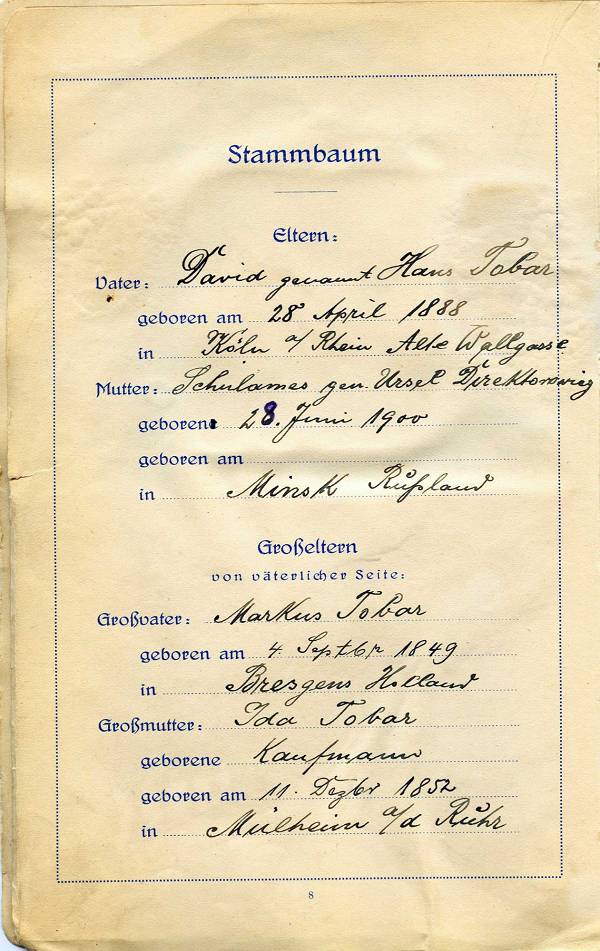 Stammbaum
Eltern:
Vater: David genannt Hans Tobar
geboren am 28 April 1888
in Köln a/ Rhein Alte Wallgasse
Mutter: Schulames gen. Ursel Direktorowicz
geborene 28. Juni 1900
geboren am
in Minsk Rußland
Großeltern
von väterlicher Seite:
Großvater: Markus Tobar
geboren am 4 Septbr 1849
in Bresgens Holland
Großmutter: Ida Tobar
geborene Kaufmann
geboren am 11. Dezbr 1852
in Mülheim a/d Ruhr
8